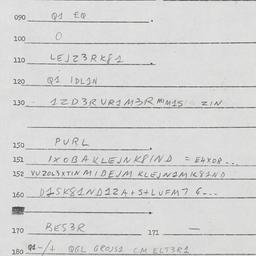 090 Q1 EQ
100 O
110 LEJZ3RK81
120 Q1 IDL1N
130 1ZD3RUR1M3R MIM15 ZIN
150 PURL
151 IXOBAKLEJNK8IND = E4XO8...
152 VUZOL3XTIN MIDEJM KLEJN1MIK81ND
160 D1SK81ND1ZA+5+LUFM7 6...
170 BES3R 171 —
180 Q1-/+ QGL GROJS1 CM ELT3R1